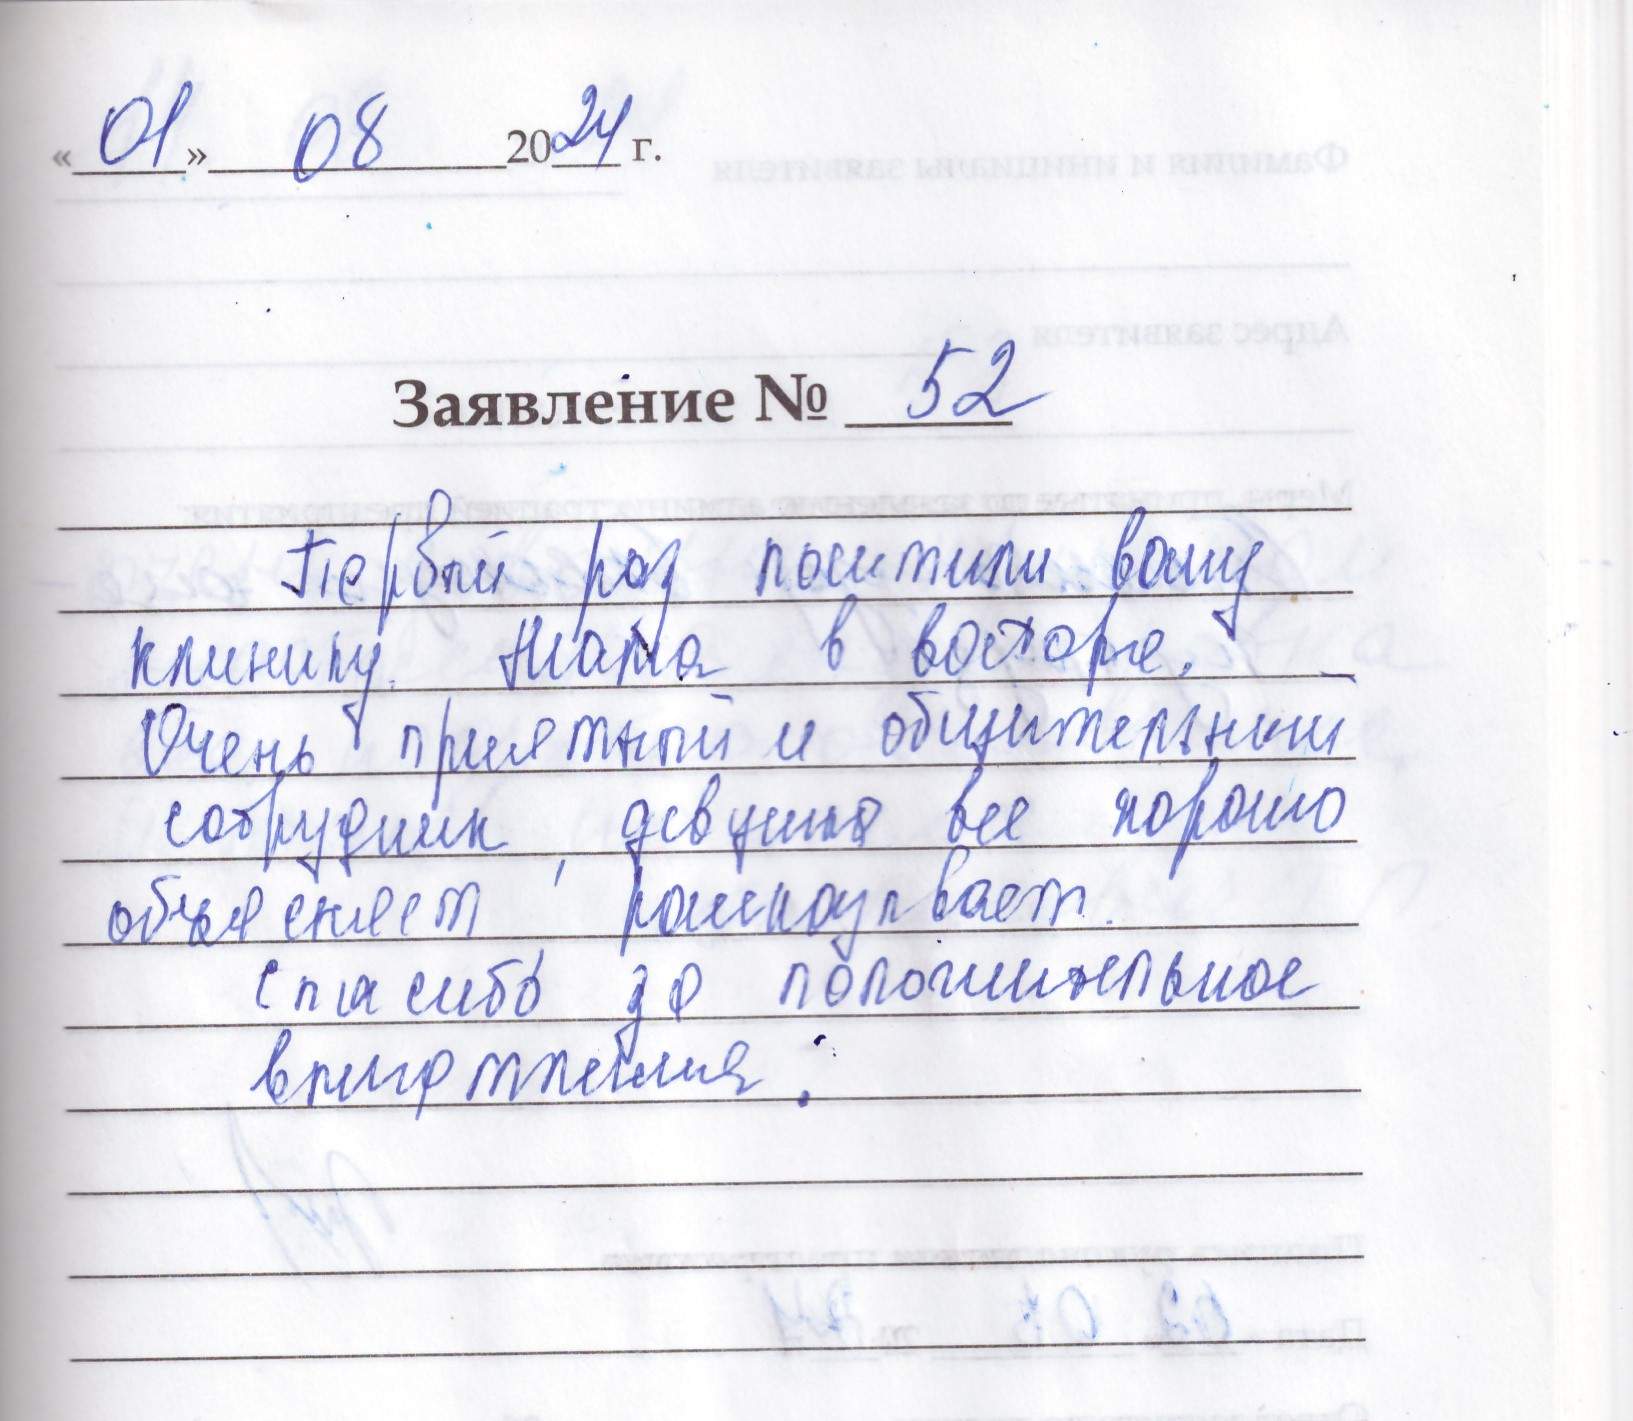 «01» 08 2024 г.
Заявление № 52
Первый раз посетили вашу
клинику. Мама в восторге.
Очень приятный и общительный
сотрудник, девушка все хорошо
объясняет, рассказывает.
Спасибо за положительное
впечатления.